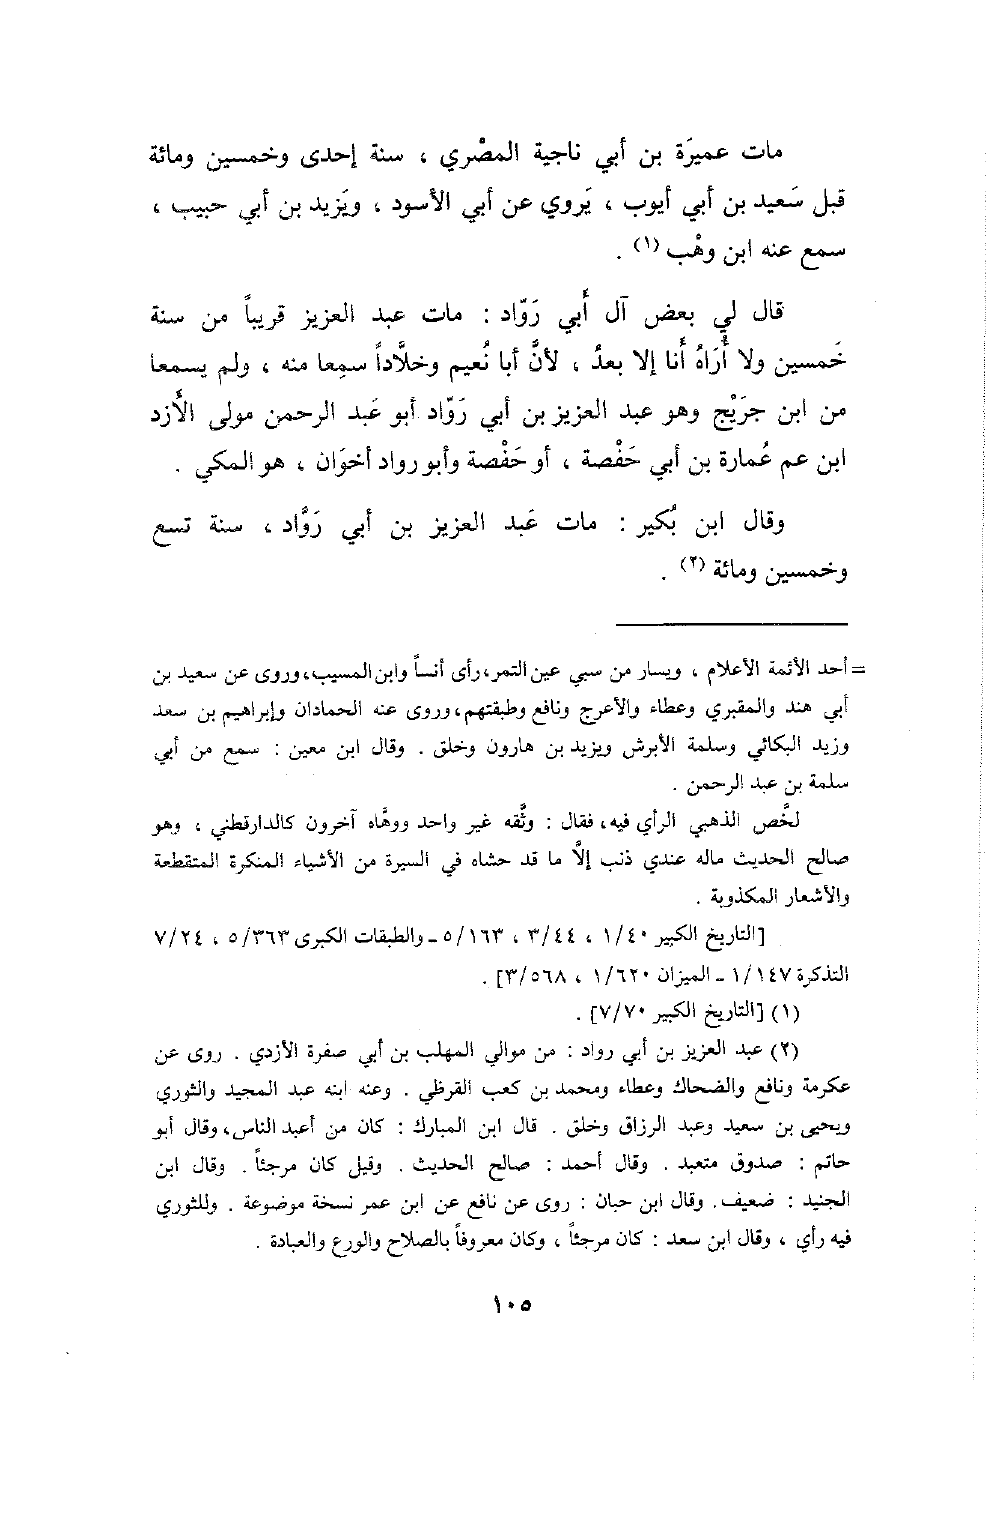 مات عميرَة بن أبي ناجية المصْري ، سنة إحدى وخمسين ومائة
قبل سَعيد بن أبي أيوب ، يَروي عن أبي الأسود ، ويَزيد بن أبي حبيب ،
سمع عنه ابن وهْب (١) .
قال لي بعض آل أَبي رَوّاد : مات عبد العزيز قريباً من سنة
خَمسين ولا أُرَاهُ أَنا إلا بعدُ ، لأنَّ أبا نُعيم وخلَّاداً سمِعا منه ، ولم يسمعا
من ابن جرَيْج وهو عبد العزيز بن أبي رَوّاد أبو عَبد الرحمن مولى الأَزد
ابن عم عُمارة بن أبي حَفْصة ، أو حَفْصة وأبو رواد أخوَان ، هو المكي .
وقال ابن بُكير : مات عَبد العزيز بن أبي رَوَّاد ، سنة تسع
وخمسين ومائة (٢) .
= أحد الأئمة الأعلام ، ويسار من سبي عين التمر، رأى أنساً وابن المسيب، وروى عن سعيد بن
أبي هند والمقبري وعطاء والأعرج ونافع وطبقتهم، وروى عنه الحمادان وإبراهيم بن سعد
وزيد البكائي وسلمة الأبرش ويزيد بن هارون وخلق . وقال ابن معين : سمع من أبي
سلمة بن عبد الرحمن .
لخَّص الذهبي الرأي فيه، فقال : وثَّقه غير واحد ووهَّاه آخرون كالدارقطني ، وهو
صالح الحديث ماله عندي ذنب إلَّا ما قد حشاه في السيرة من الأشياء المنكرة المتقطعة
والأشعار المكذوبة .
[التاريخ الكبير ١/٤٠ ، ٣/٤٤ ، ٥/١٦٣ ـ والطبقات الكبرى ٥/٣٦٣ ، ٧/٢٤
التذكرة ١/١٤٧ ـ الميزان ١/٦٢٠ ، ٣/٥٦٨] .
(١) [التاريخ الكبير ٧/٧٠] .
(٢) عبد العزيز بن أبي رواد : من موالي المهلب بن أبي صفرة الأزدي . روى عن
عكرمة ونافع والضحاك وعطاء ومحمد بن كعب القرظي . وعنه ابنه عبد المجيد والثوري
ويحيى بن سعيد وعبد الرزاق وخلق . قال ابن المبارك : كان من أعبد الناس، وقال أبو
حاتم : صدوق متعبد . وقال أحمد : صالح الحديث . وقيل كان مرجئاً . وقال ابن
الجنيد : ضعيف. وقال ابن حبان : روى عن نافع عن ابن عمر نسخة موضوعة . وللثوري
فيه رأي ، وقال ابن سعد : كان مرجئاً ، وكان معروفاً بالصلاح والورع والعبادة .
١٠٥